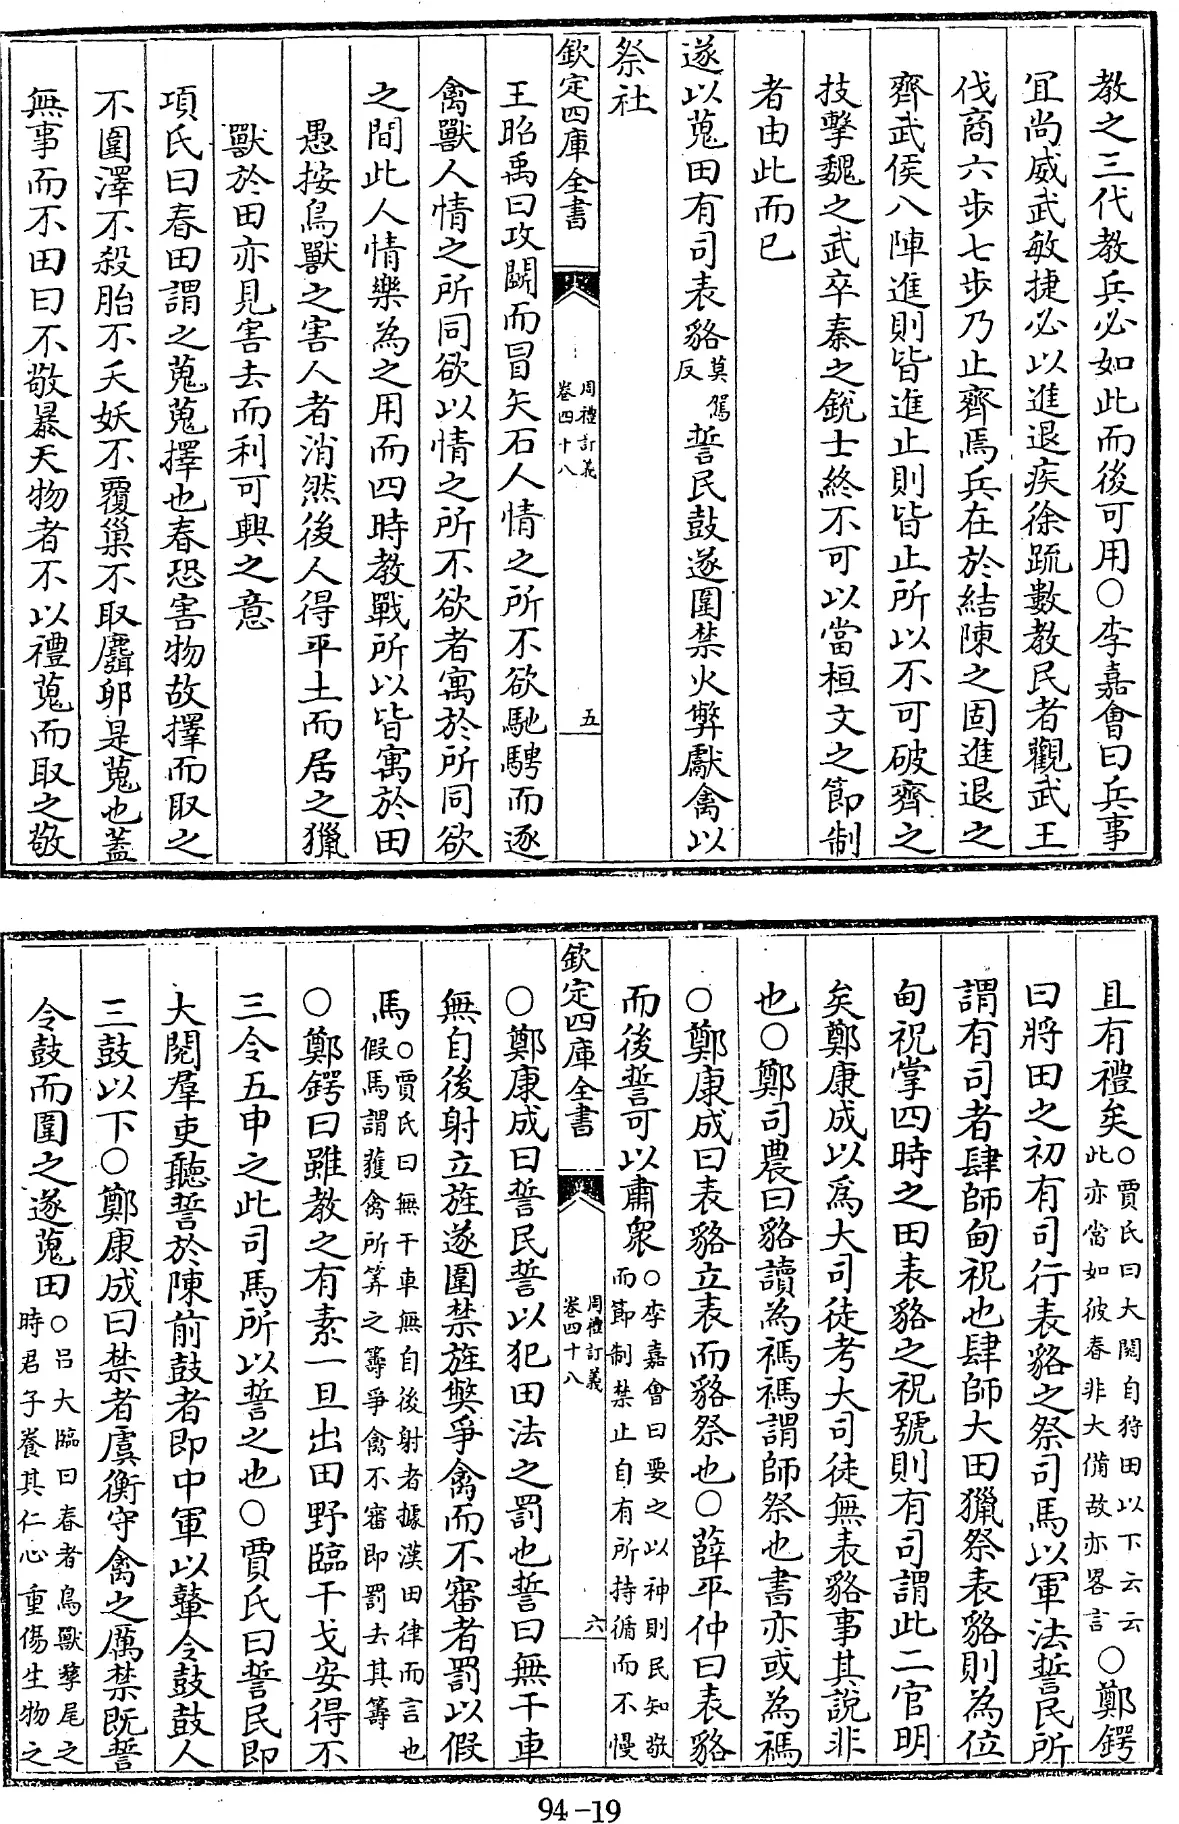 教之三代教兵必如此而後可用○李嘉會曰兵事
宜尚威武敏捷必以進退疾徐疏數教民者觀武王
伐商六步七步乃止齊焉兵在於結陳之固進退之
齊武侯八陣進則皆進止則皆止所以不可破齊之
技擊魏之武卒秦之銳士終不可以當桓文之節制
者由此而已
遂以蒐田有司表貉莫駕反誓民鼓遂圍禁火弊獻禽以
祭社
欽定四庫全書
周禮訂義
卷四十八
五
王昭禹曰攻鬭而冒矢石人情之所不欲馳騁而逐
禽獸人情之所同欲以情之所不欲者寓於所同欲
之間此人情樂為之用而四時教戰所以皆寓於田
愚按鳥獸之害人者消然後人得平土而居之獵
獸於田亦見害去而利可興之意
項氏曰春田謂之蒐蒐擇也春恐害物故擇而取之
不圍澤不殺胎不夭妖不覆巢不取麛卵是蒐也蓋
無事而不田曰不敬暴天物者不以禮蒐而取之敬
且有禮矣○賈氏曰大閱自狩田以下云云
此亦當如彼春非大備故亦畧言○鄭鍔
曰將田之初有司行表貉之祭司馬以軍法誓民所
謂有司者肆師甸祝也肆師大田獵祭表貉則為位
甸祝掌四時之田表貉之祝號則有司謂此二官明
矣鄭康成以爲大司徒考大司徒無表貉事其說非
也○鄭司農曰貉讀為禡禡謂師祭也書亦或為禡
○鄭康成曰表貉立表而貉祭也○薛平仲曰表貉
而後誓可以肅衆○李嘉會曰要之以神則民知敬
而節制禁止自有所持循而不慢
欽定四庫全書
周禮訂義
卷四十八
六
○鄭康成曰誓民誓以犯田法之罰也誓曰無干車
無自後射立旌遂圍禁旌獘爭禽而不審者罰以假
馬○賈氏曰無干車無自後射者據漢田律而言也
假馬謂獲禽所算之籌爭禽不審即罰去其籌
○鄭鍔曰雖教之有素一旦出田野臨干戈安得不
三令五申之此司馬所以誓之也○賈氏曰誓民即
大閱羣吏聽誓於陳前鼓者即中軍以鼙令鼓鼓人
三鼓以下○鄭康成曰禁者虞衡守禽之厲禁既誓
令鼓而圍之遂蒐田○呂大臨曰春者鳥獸孳尾之
時君子養其仁心重傷生物之
94-19